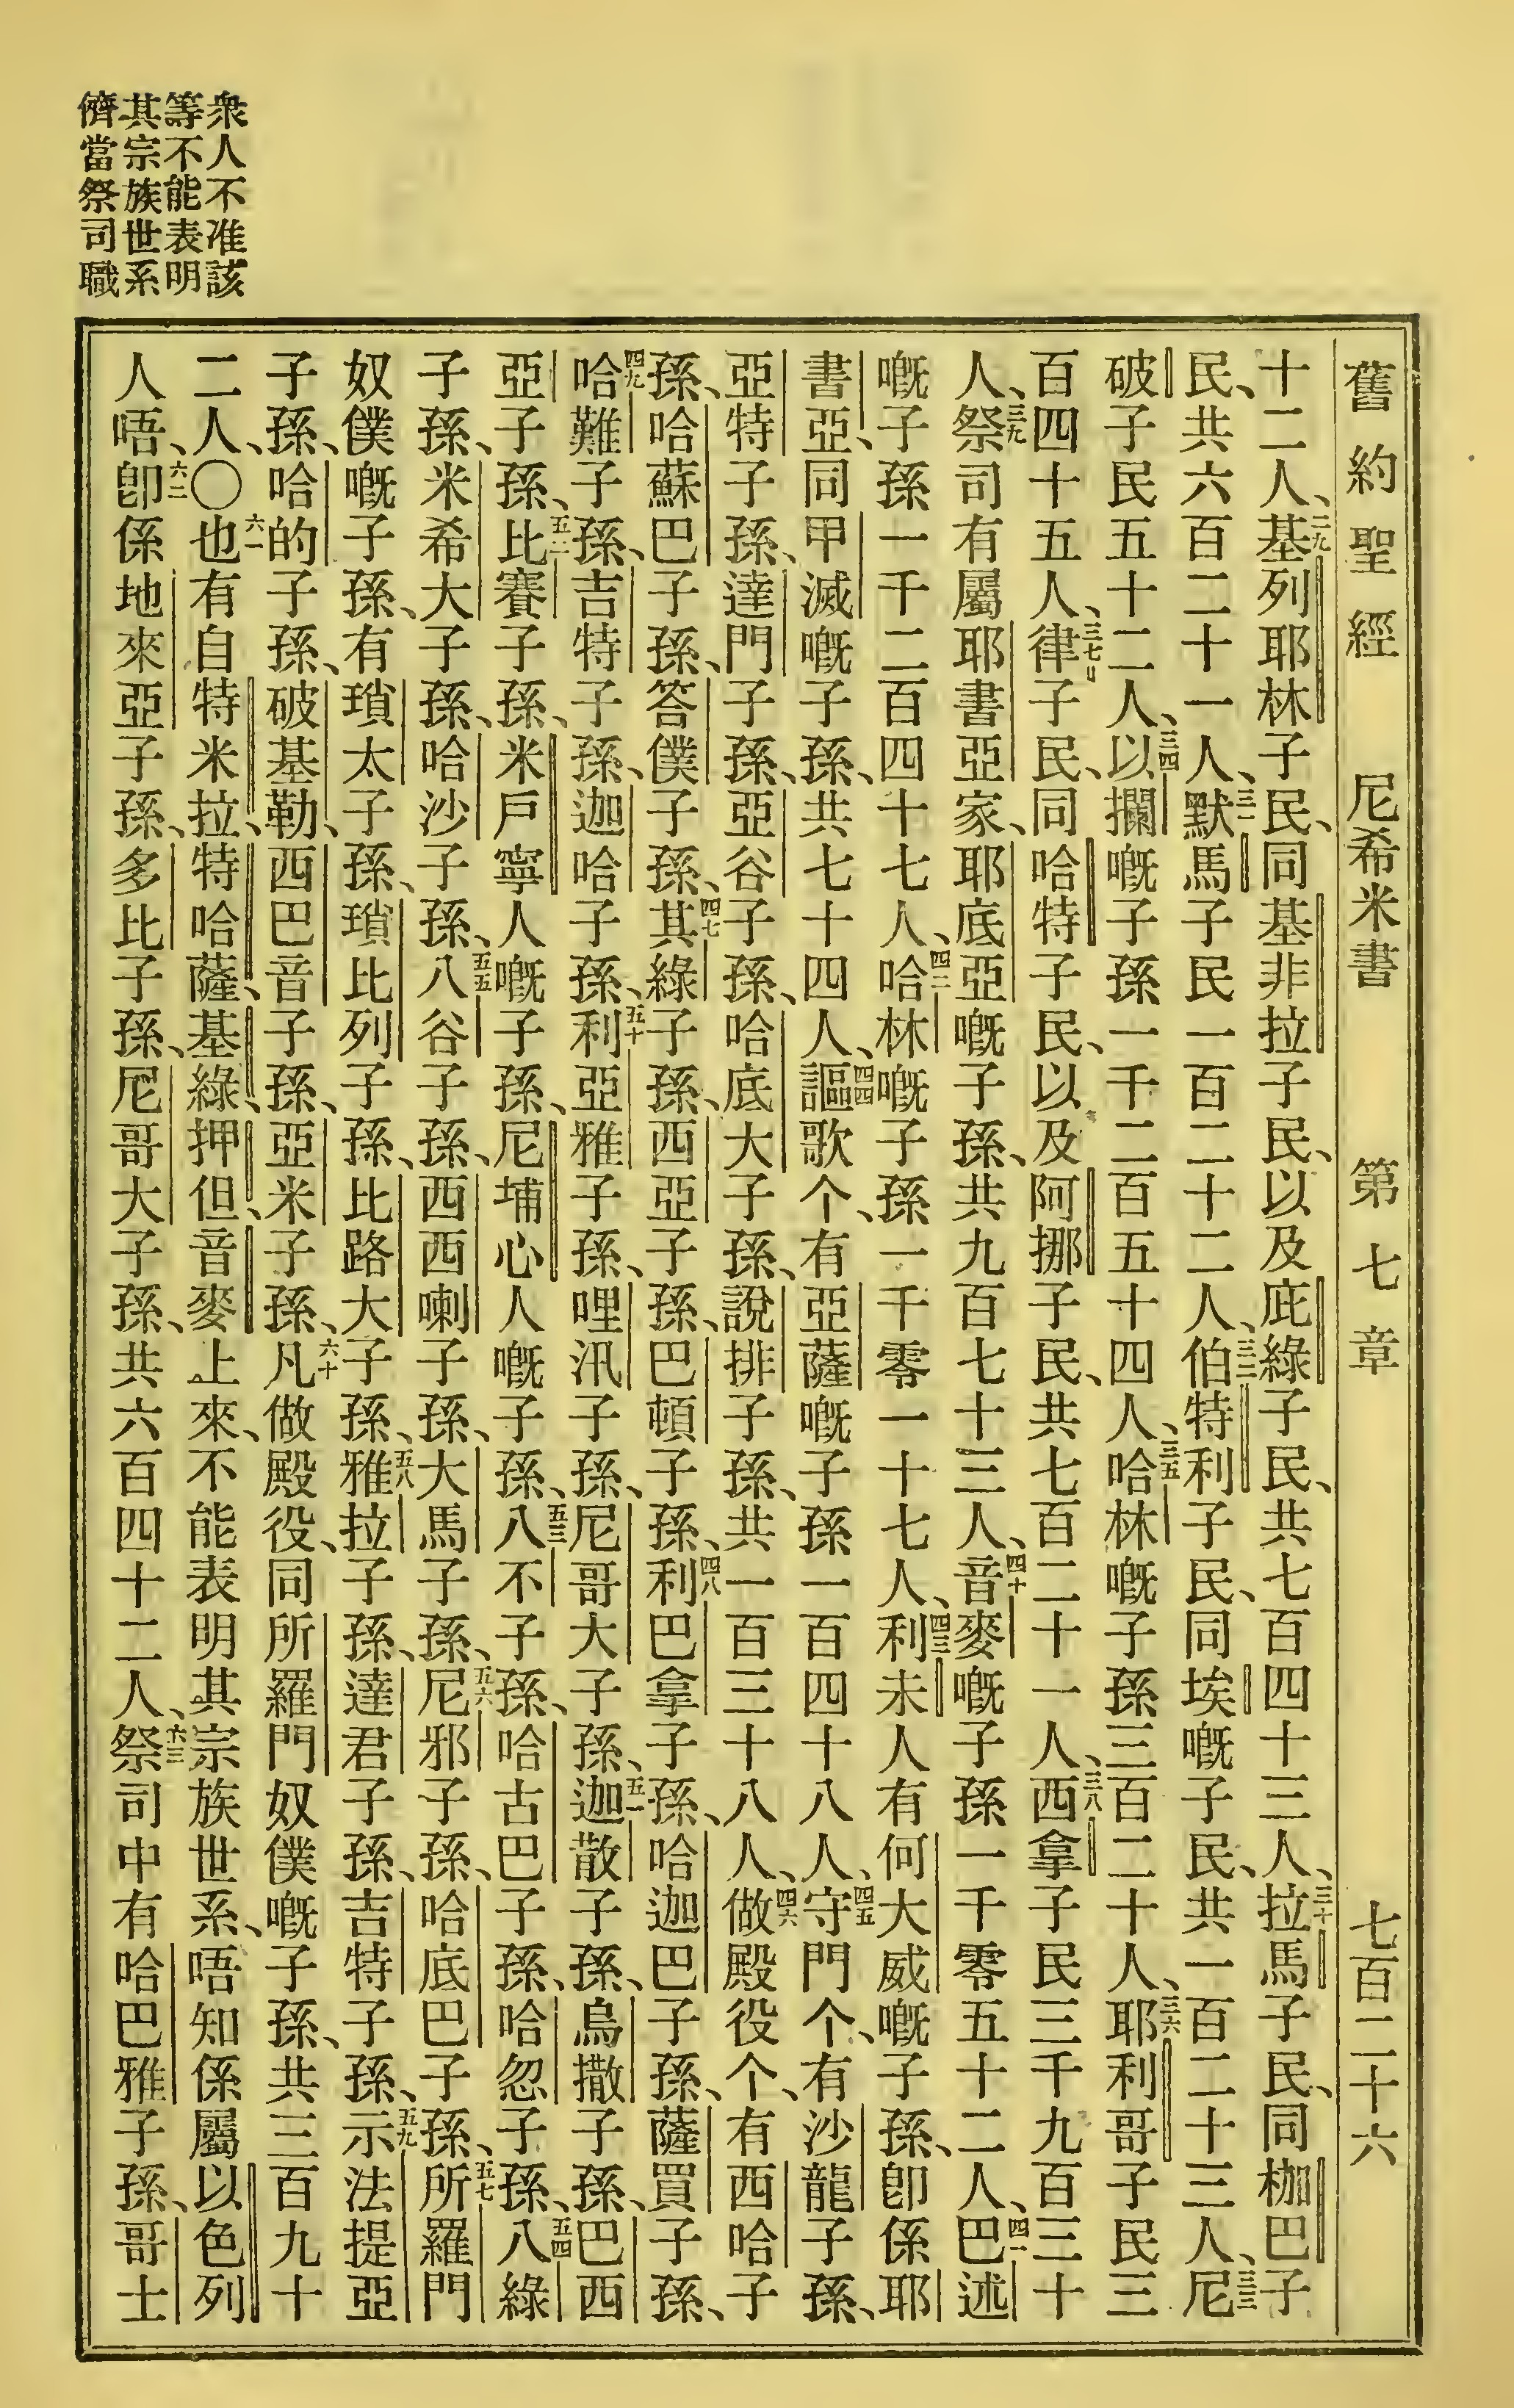 舊約聖經　尼希米書　第七章　七百二十六
十二人、二九基列耶林子民、同基非拉子民、以及庇綠子民、共七百四十三人、三十拉馬子民、同枷巴子
民、共六百二十一人、三一默馬子民一百二十二人、三二伯特利子民、同埃嘅子民、共一百二十三人、三三尼
破子民五十二人、三四以攔嘅子孫一千二百五十四人、三五哈林嘅子孫三百二十人、三六耶利哥子民三
百四十五人、三七律子民、同哈特子民、以及阿挪子民、共七百二十一人、三八西拿子民三千九百三十
人、三九祭司有屬耶書亞家、耶底亞嘅子孫、共九百七十三人、四十音麥嘅子孫一千零五十二人、四一巴述
嘅子孫一千二百四十七人、四二哈林嘅子孫一千零一十七人、四三利未人有何大威嘅子孫、卽係耶
書亞、同甲滅嘅子孫、共七十四人、四四謳歌个、有亞薩嘅子孫一百四十八人、四五守門个、有沙龍子孫、
亞特子孫、達門子孫、亞谷子孫、哈底大子孫、說排子孫、共一百三十八人、四六做殿役个、有西哈子
孫、哈蘇巴子孫、答僕子孫、四七其綠子孫、西亞子孫、巴頓子孫、四八利巴拿子孫、哈迦巴子孫、薩買子孫、
四九哈難子孫、吉特子孫、迦哈子孫、五十利亞雅子孫、哩汛子孫、尼哥大子孫、五一迦散子孫、烏撒子孫、巴西
亞子孫、五二比賽子孫、米戶寧人嘅子孫、尼埔心人嘅子孫、五三八不子孫、哈古巴子孫、哈忽子孫、五四八綠
子孫、米希大子孫、哈沙子孫、五五八谷子孫、西西喇子孫、大馬子孫、五六尼邪子孫、哈底巴子孫、五七所羅門
奴僕嘅子孫、有瑣太子孫、瑣比列子孫、比路大子孫、五八雅拉子孫、達君子孫、吉特子孫、五九示法提亞
子孫、哈的子孫、破基勒、西巴音子孫、亞米子孫、六十凡做殿役、同所羅門奴僕嘅子孫、共三百九十
二人、〇六一也有自特米拉、特哈薩、基綠、押但、音麥上來、不能表明其宗族世系、唔知係屬以色列
人唔、六二卽係地來亞子孫、多比子孫、尼哥大子孫、共六百四十二人、六三祭司中有哈巴雅子孫、哥士
衆人不准該
等不能表明
其宗族世系
儕當祭司職